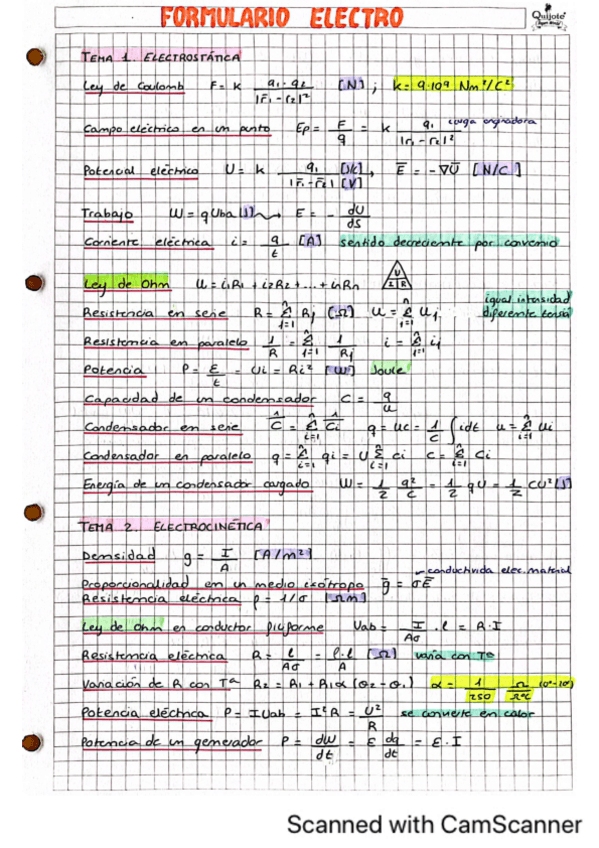 FORMULARIO ELECTRO
Quijote
TEMA 1. ELECTROSTÁTICA
Ley de Coulomb F = k q₁·q₂ / |r̄₁-r₂|² [N] ; k = 9·10⁹ Nm²/C²
Campo eléctrico en un punto Ep = F/q = k q₁ / |r₁-r₂|² carga originadora
Potencial eléctrico U = k q₁ / |r̄₁-r̄₂| [J/C] [V] , E̅ = -∇U̅ [N/C]
Trabajo W = q Uba [J] → E = - dU/ds
Corriente eléctrica i = q/t [A] sentido decreciente por convenio
Ley de Ohm U = i₁R₁ + i₂R₂ + ... + inRn U I R
igual intensidad
Resistencia en serie R = Σ Rj [Ω] U = Σ Uj diferente tensión
Resistencia en paralelo 1/R = Σ 1/Rj i = Σ ij
Potencia P = E/t = Ui = Ri² [W] Joule
Capacidad de un condensador C = q/u
Condensador en serie 1/C = Σ 1/Ci q = uc = 1/C ∫idt u = Σ ui
Condensador en paralelo q = Σ qi = U Σ ci C = Σ Ci
Energía de un condensador cargado W = 1/2 q²/C = 1/2 qU = 1/2 CU² [J]
TEMA 2. ELECTROCINÉTICA
Densidad g = I/A [A/m²]
conductivida elec. material
Proporcionalidad en un medio isótropo g̅ = σE̅
Resistencia eléctrica ρ = 1/σ [Ωm]
Ley de Ohm en conductor filiforme Uab = I/Aσ · l = R·I
Resistencia eléctrica R = l/Aσ = ρ·l/A [Ω] varía con Tª
Variación de R con Tª R₂ = R₁ + R₁α (θ₂ - θ₁) α = 1/250 Ω/Ω°C
Potencia eléctrica P = I Uab = I²R = U²/R se convierte en calor
Potencia de un generador P = dW/dt = ε dq/dt = ε·I
Scanned with CamScanner